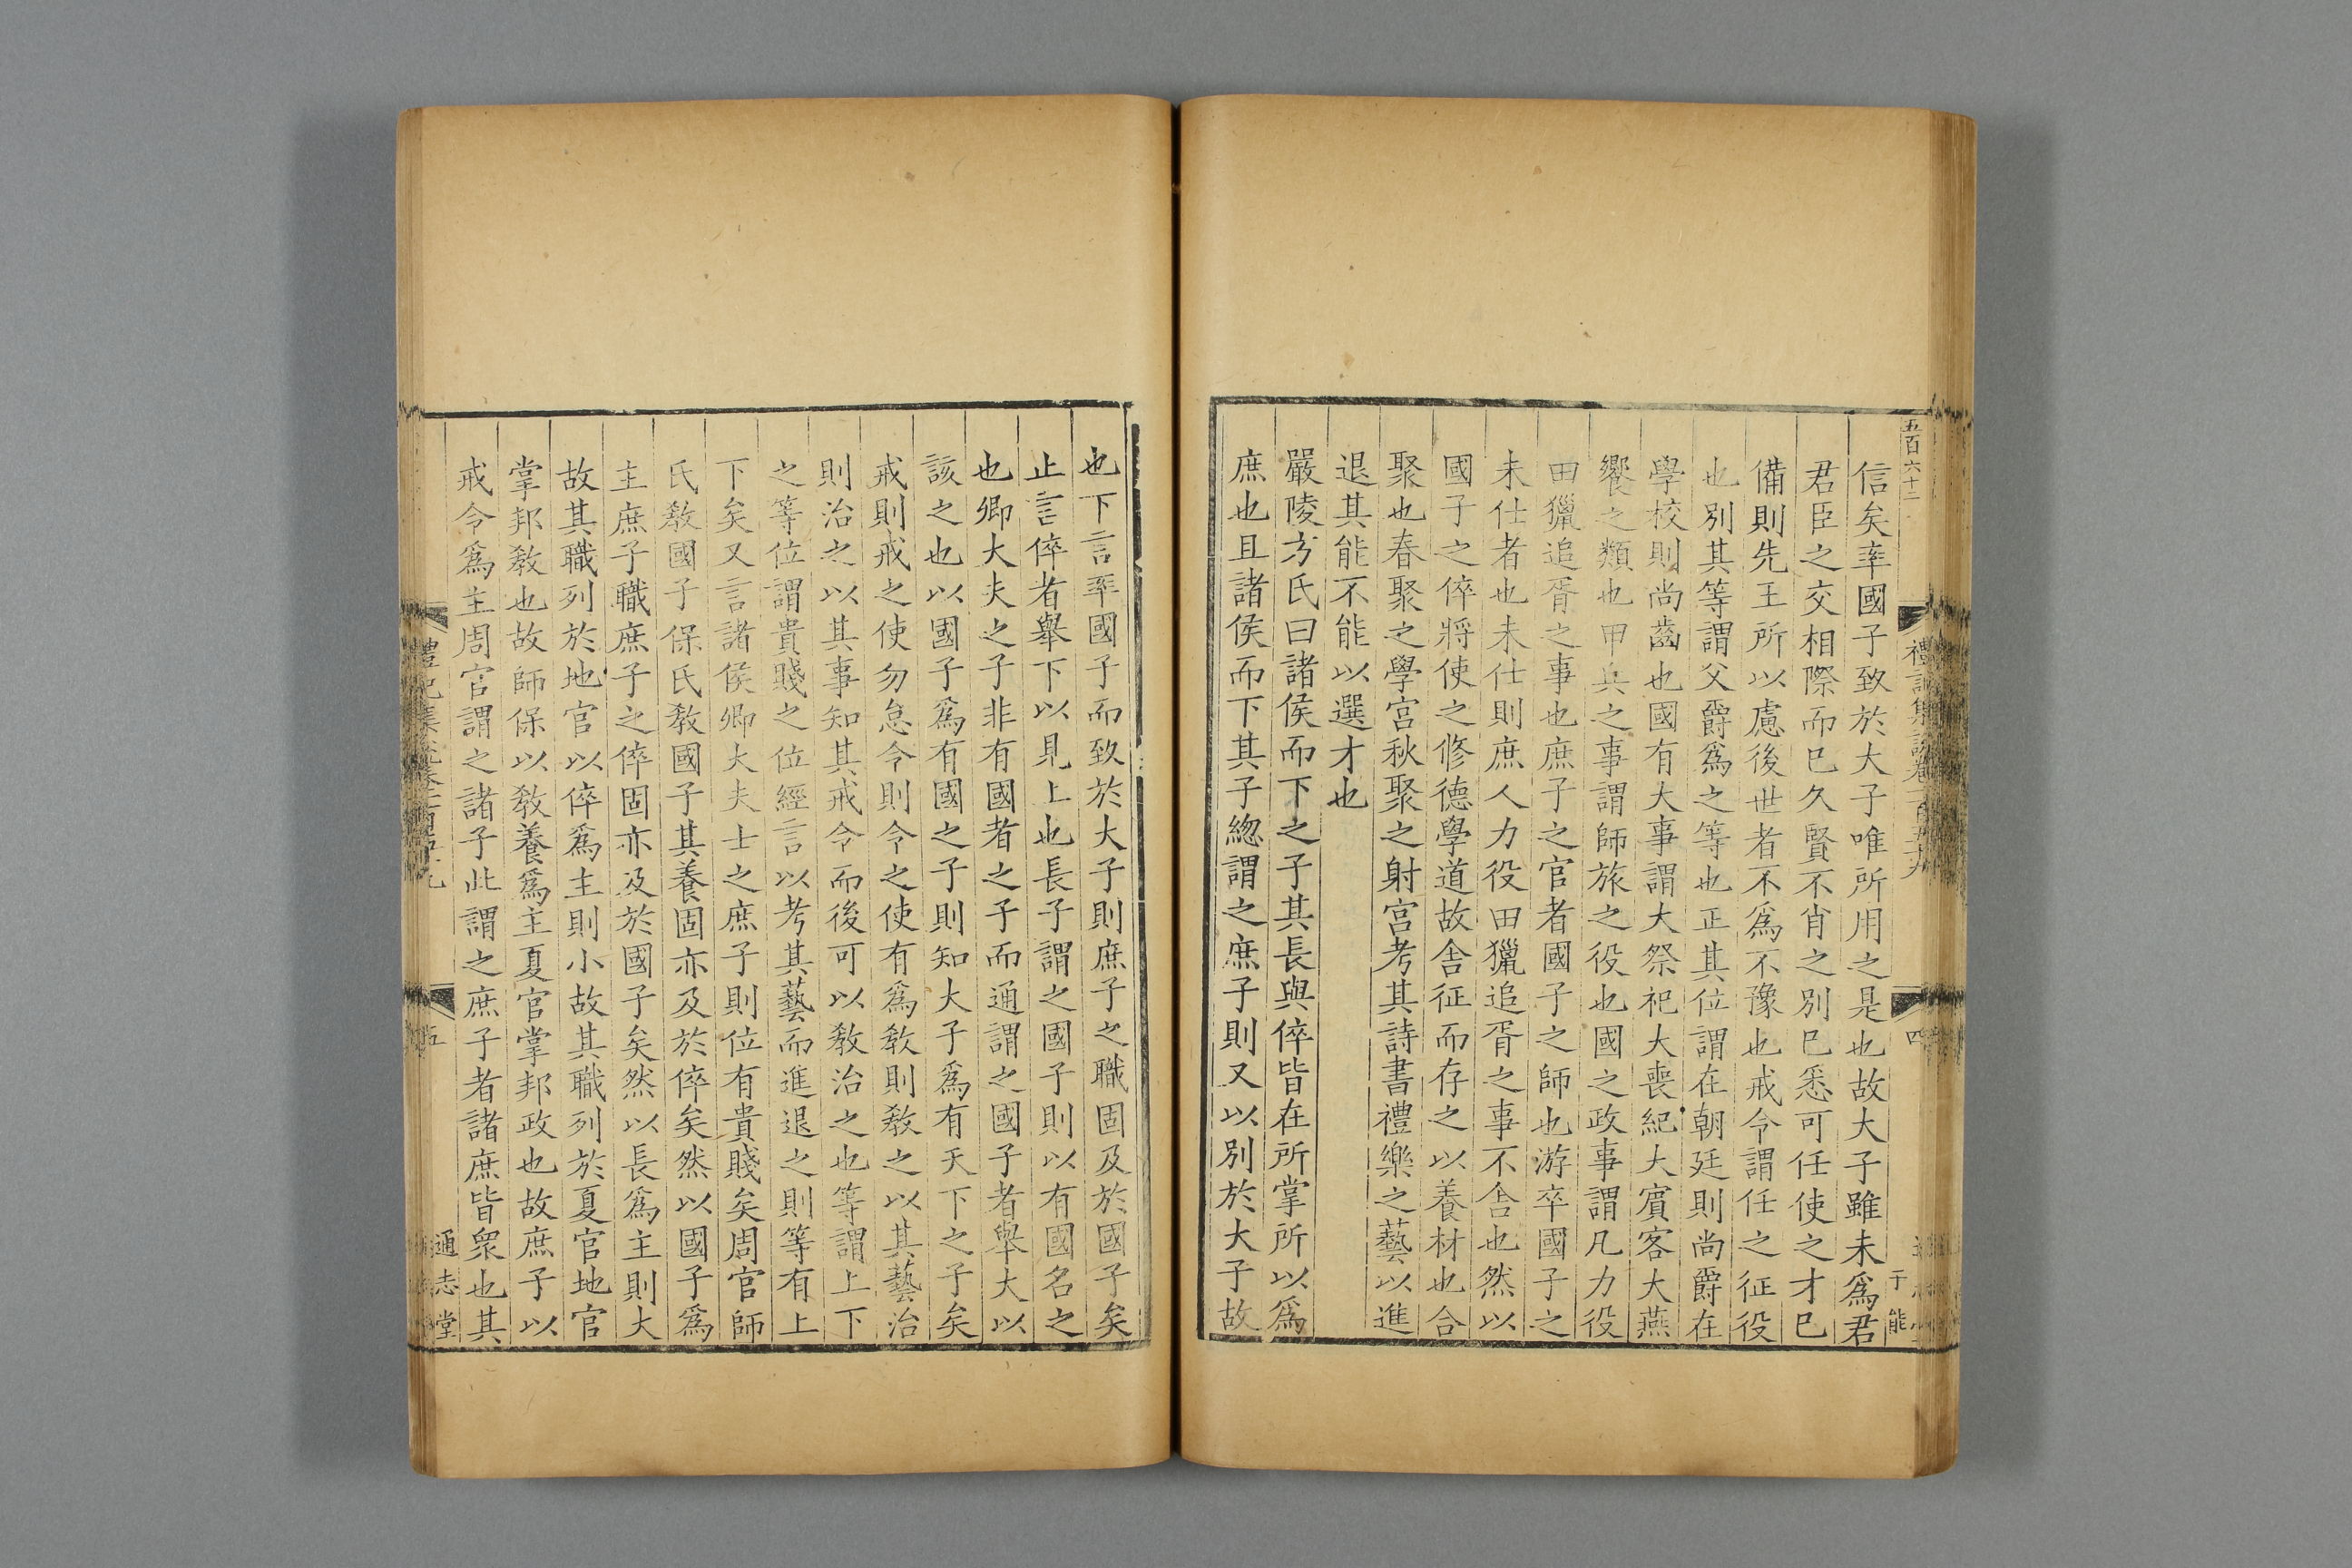 五百六十二
信矣率國子致於大子唯所用之是也故大子雖未爲君
君臣之交相際而已久賢不肖之別已悉可任使之才已
備則先王所以慮後世者不爲不豫也戒令謂任之征役
也別其等謂父爵爲之等也正其位謂在朝廷則尚爵在
學校則尚齒也國有大事謂大祭祀大喪紀大賓客大燕
饗之類也甲兵之事謂師旅之役也國之政事謂凡力役
田獵追胥之事也庶子之官者國子之師也游卒國子之
未仕者也未仕則庶人力役田獵追胥之事不舍也然以
國子之倅將使之修德學道故舍征而存之以養材也合
聚也春聚之學宮秋聚之射宮考其詩書禮樂之藝以進
退其能不能以選才也
嚴陵方氏曰諸侯而下之子其長與倅皆在所掌所以爲
庶也且諸侯而下其子緫謂之庶子則又以別於大子故
禮記集說卷一百五十九
四
于能
也下言率國子而致於大子則庶子之職固及於國子矣
止言倅者舉下以見上也長子謂之國子則以有國名之
也卿大夫之子非有國者之子而通謂之國子者舉大以
該之也以國子爲有國之子則知大子爲有天下之子矣
戒則戒之使勿怠令則令之使有爲敎則敎之以其藝治
則治之以其事知其戒令而後可以敎治之也等謂上下
之等位謂貴賤之位經言以考其藝而進退之則等有上
下矣又言諸侯卿大夫士之庶子則位有貴賤矣周官師
氏敎國子保氏敎國子其養固亦及於倅矣然以國子爲
主庶子職庶子之倅固亦及於國子矣然以長爲主則大
故其職列於地官以倅爲主則小故其職列於夏官地官
掌邦敎也故師保以敎養爲主夏官掌邦政也故庶子以
戒令爲主周官謂之諸子此謂之庶子者諸庶皆衆也其
禮記集說卷一百五十九
五
通志堂